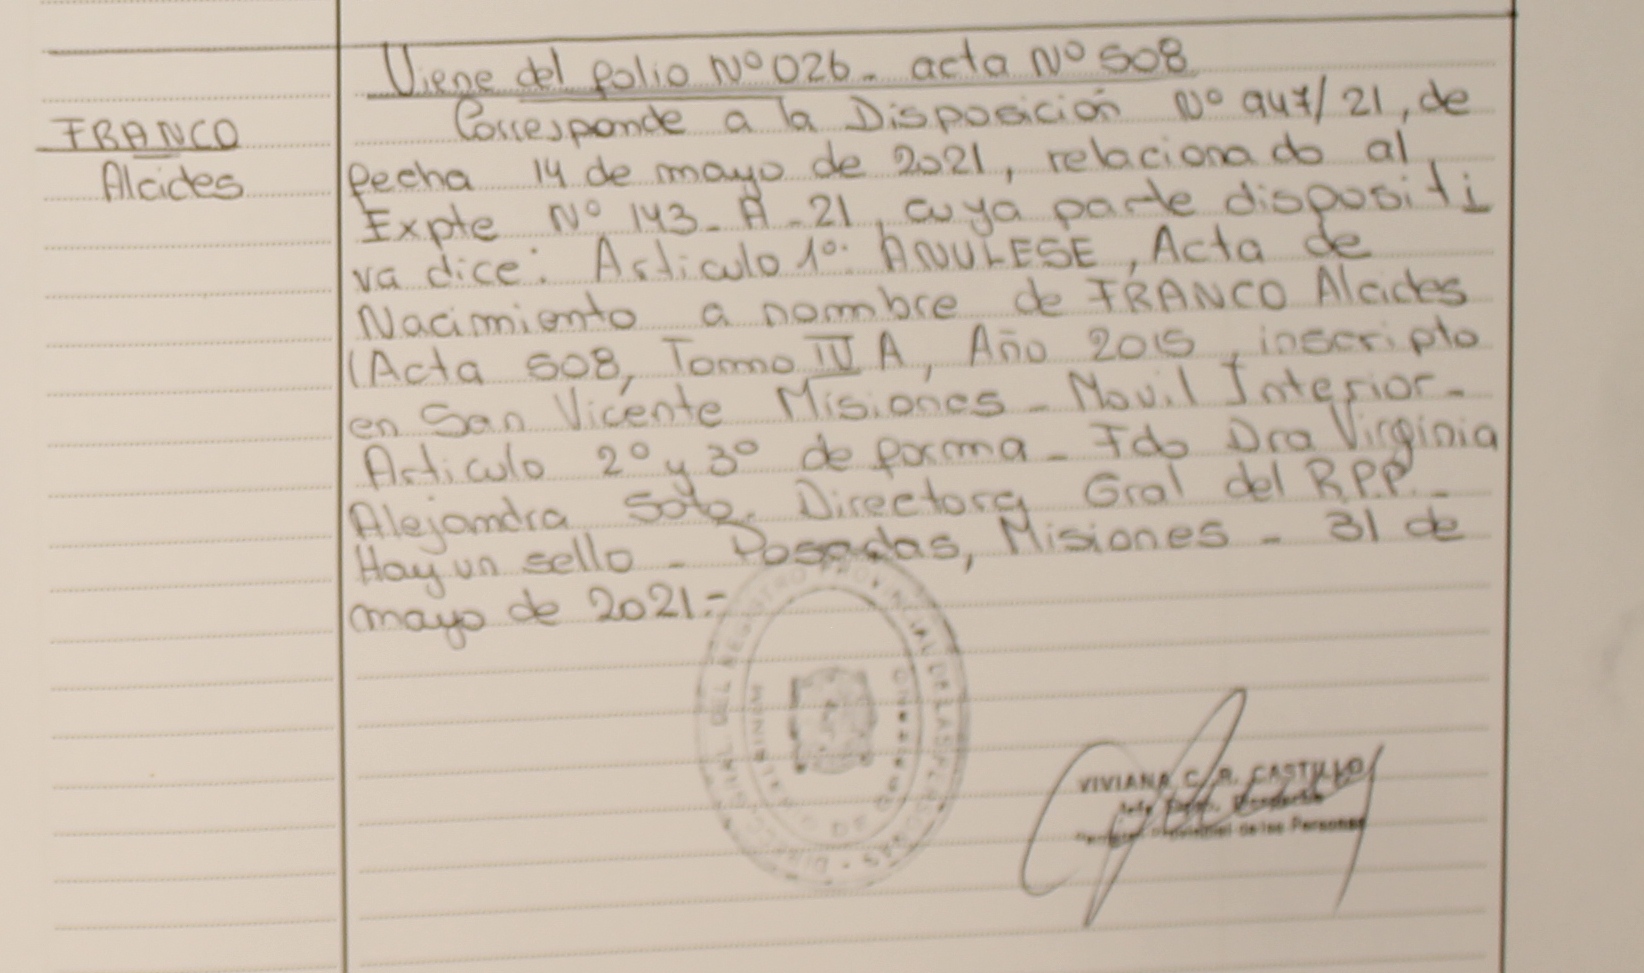 Viene del folio Nº 026 - acta Nº 508
FRANCO
Alcides
Corresponde a la Disposición Nº 947/21, de
fecha 14 de mayo de 2021, relacionado al
Expte Nº 143 - A - 21, cuya parte dispositi
va dice: Articulo 1º: ANULESE, Acta de
Nacimiento a nombre de FRANCO Alcides
(Acta 508, Tomo IV A, Año 2015, inscripto
en San Vicente Misiones - Movil Interior -
Articulo 2º y 3º de forma - Fdo Dra Virginia
Alejandra Soto. Directora Gral del R.P.P. -
Hay un sello - Posadas, Misiones - 31 de
mayo de 2021.-
DEL REGISTRO PROVINCIAL DE LAS PERSONAS
VIVIANA C. R. CASTILLO
Provincial de las Personas